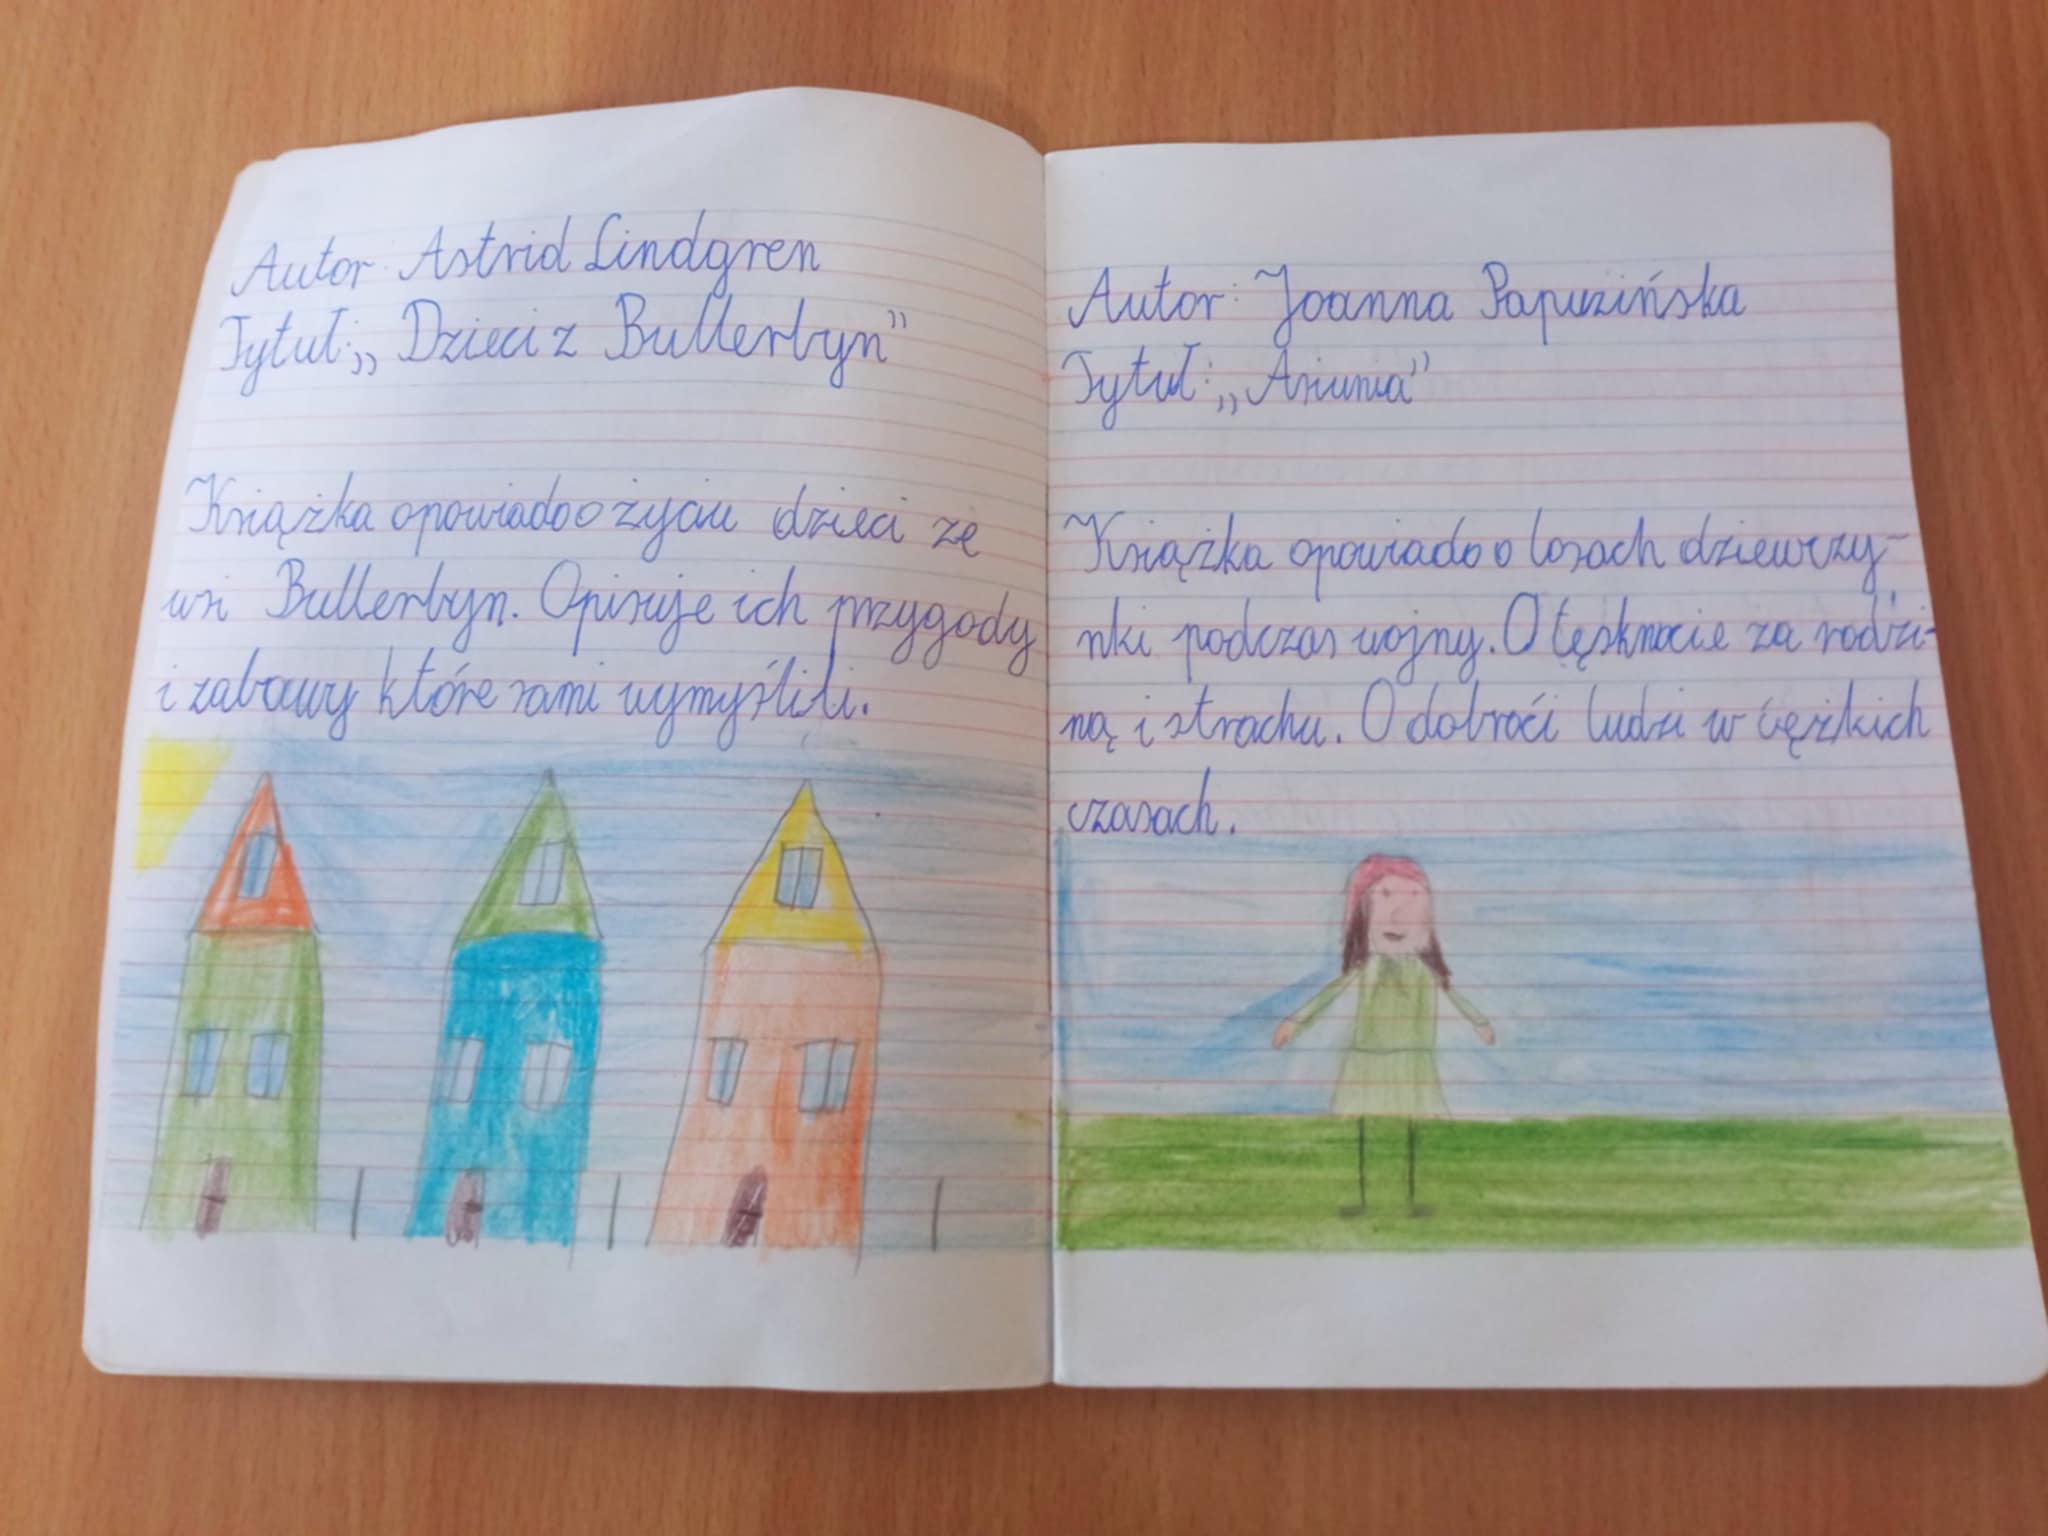 Autor: Astrid Lindgren
Tytuł: „Dzieci z Bullerbyn”
Książka opowiada o życiu dzieci ze
wsi Bullerbyn. Opisuje ich przygody
i zabawy które sami wymyślili.
Autor: Joanna Papuzińska
Tytuł: „Asiunia”
Książka opowiada o losach dziewczy-
nki podczas wojny. O tęsknocie za rodzi-
ną i strachu. O dobroći ludzi w ćężkich
czasach.